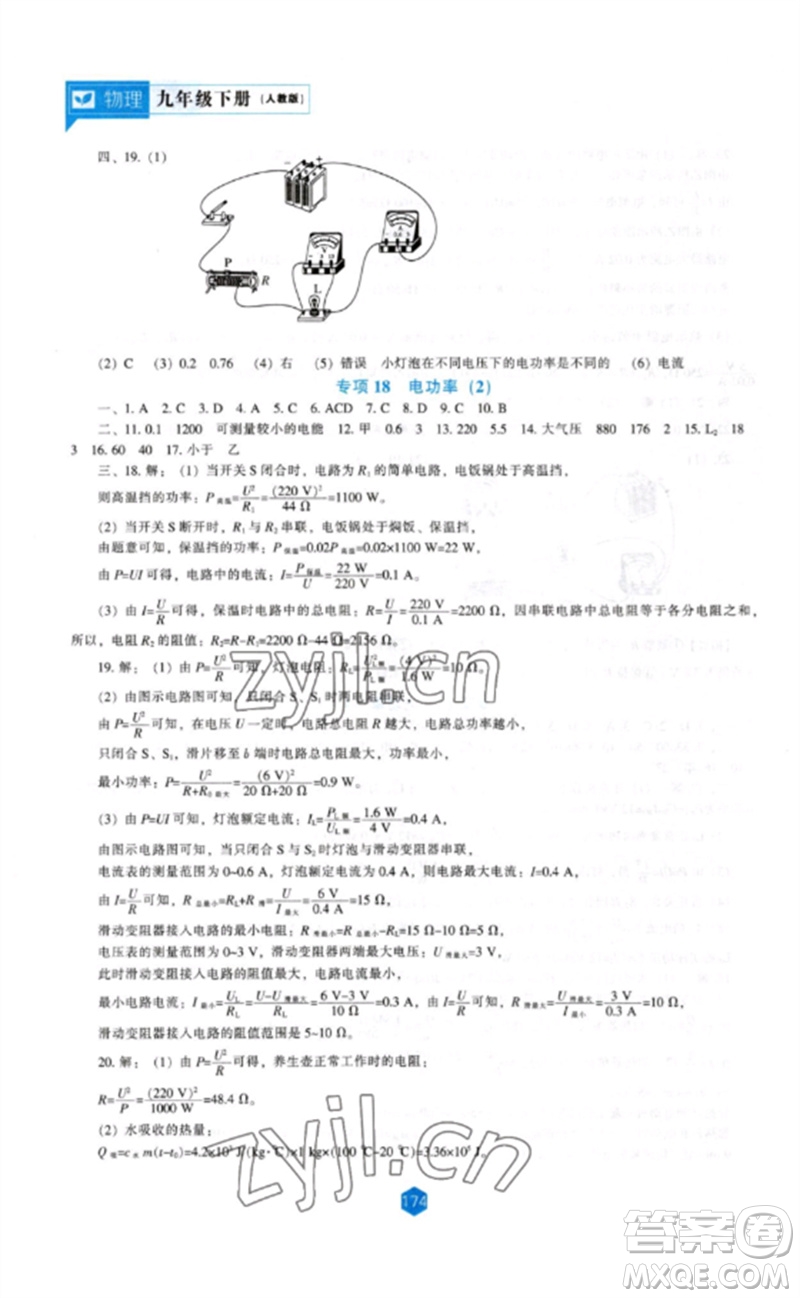 物理 九年级下册 (人教版)
四、19. (1)
− +
A
0.6 3
V
3 15
P
R
L
(2) C (3) 0.2 0.76 (4) 右 (5) 错误 小灯泡在不同电压下的电功率是不同的 (6) 电流
专项 18 电功率 (2)
一、1. A 2. C 3. D 4. C 5. C 6. ACD 7. C 8. D 9. C 10. B
二、11. 0.1 1200 可测量较小的电能 12. 甲 0.6 3 13. 220 5.5 14. 大气压 880 176 2 15. L₂ 18
3 16. 60 40 17. 小于 乙
三、18. 解：(1) 当开关 S 闭合时，电路为 R₁ 的简单电路，电饭锅处于高温挡，
则高温挡的功率：P高温=U²/R₁=(220 V)²/44 Ω=1100 W。
(2) 当开关 S 断开时，R₁ 与 R₂ 串联，电饭锅处于焖饭、保温挡，
由题意可知，保温挡的功率：P保温=0.02P高温=0.02×1100 W=22 W，
由 P=UI 可得，电路中的电流：I=P保温/U=22 W/220 V=0.1 A。
(3) 由 I=U/R 可得，保温时电路中的总电阻：R=U/I=220 V/0.1 A=2200 Ω，因串联电路中总电阻等于各分电阻之和，
所以，电阻 R₂ 的阻值：R₂=R−R₁=2200 Ω−44 Ω=2156 Ω。
19. 解：(1) 由 P=U²/R 可知，灯泡电阻：R_L=U²L额/P_L额=(4 V)²/1.6 W=10 Ω。
(2) 由图示电路图可知，只闭合 S、S₁ 时两电阻串联，
由 P=U²/R 可知，在电压 U 一定时，电路总电阻 R 越大，电路总功率越小，
只闭合 S、S₁，滑片移至 b 端时电路总电阻最大，功率最小，
最小功率：P=U²/(R+R₀最大)=(6 V)²/(20 Ω+20 Ω)=0.9 W。
(3) 由 P=UI 可知，灯泡额定电流：I_L=P_L额/U_L额=1.6 W/4 V=0.4 A，
由图示电路图可知，当只闭合 S 与 S₂ 时灯泡与滑动变阻器串联，
电流表的测量范围为 0~0.6 A，灯泡额定电流为 0.4 A，则电路最大电流：I=0.4 A，
由 I=U/R 可知，R总最小=R_L+R滑=U/I最大=6 V/0.4 A=15 Ω，
滑动变阻器接入电路的最小电阻：R滑最小=R总最小−R_L=15 Ω−10 Ω=5 Ω，
电压表的测量范围为 0~3 V，滑动变阻器两端最大电压：U滑最大=3 V，
此时滑动变阻接入电路的阻值最大，电路电流最小，
最小电路电流：I最小=U_L/R_L=(U−U滑最大)/R_L=(6 V−3 V)/10 Ω=0.3 A，由 I=U/R 可知，R滑最大=U滑最大/I最小=3 V/0.3 A=10 Ω，
滑动变阻器接入电路的阻值范围是 5~10 Ω。
20. 解：(1) 由 P=U²/R 可得，养生壶正常工作时的电阻：
R=U²/P=(220 V)²/1000 W=48.4 Ω。
(2) 水吸收的热量：
Q吸=c水m(t−t₀)=4.2×10³ J/(kg·℃)×1 kg×(100 ℃−20 ℃)=3.36×10⁵ J。
174
zyjl.cn
zyjl.cn
答案圈
MXQE.COM